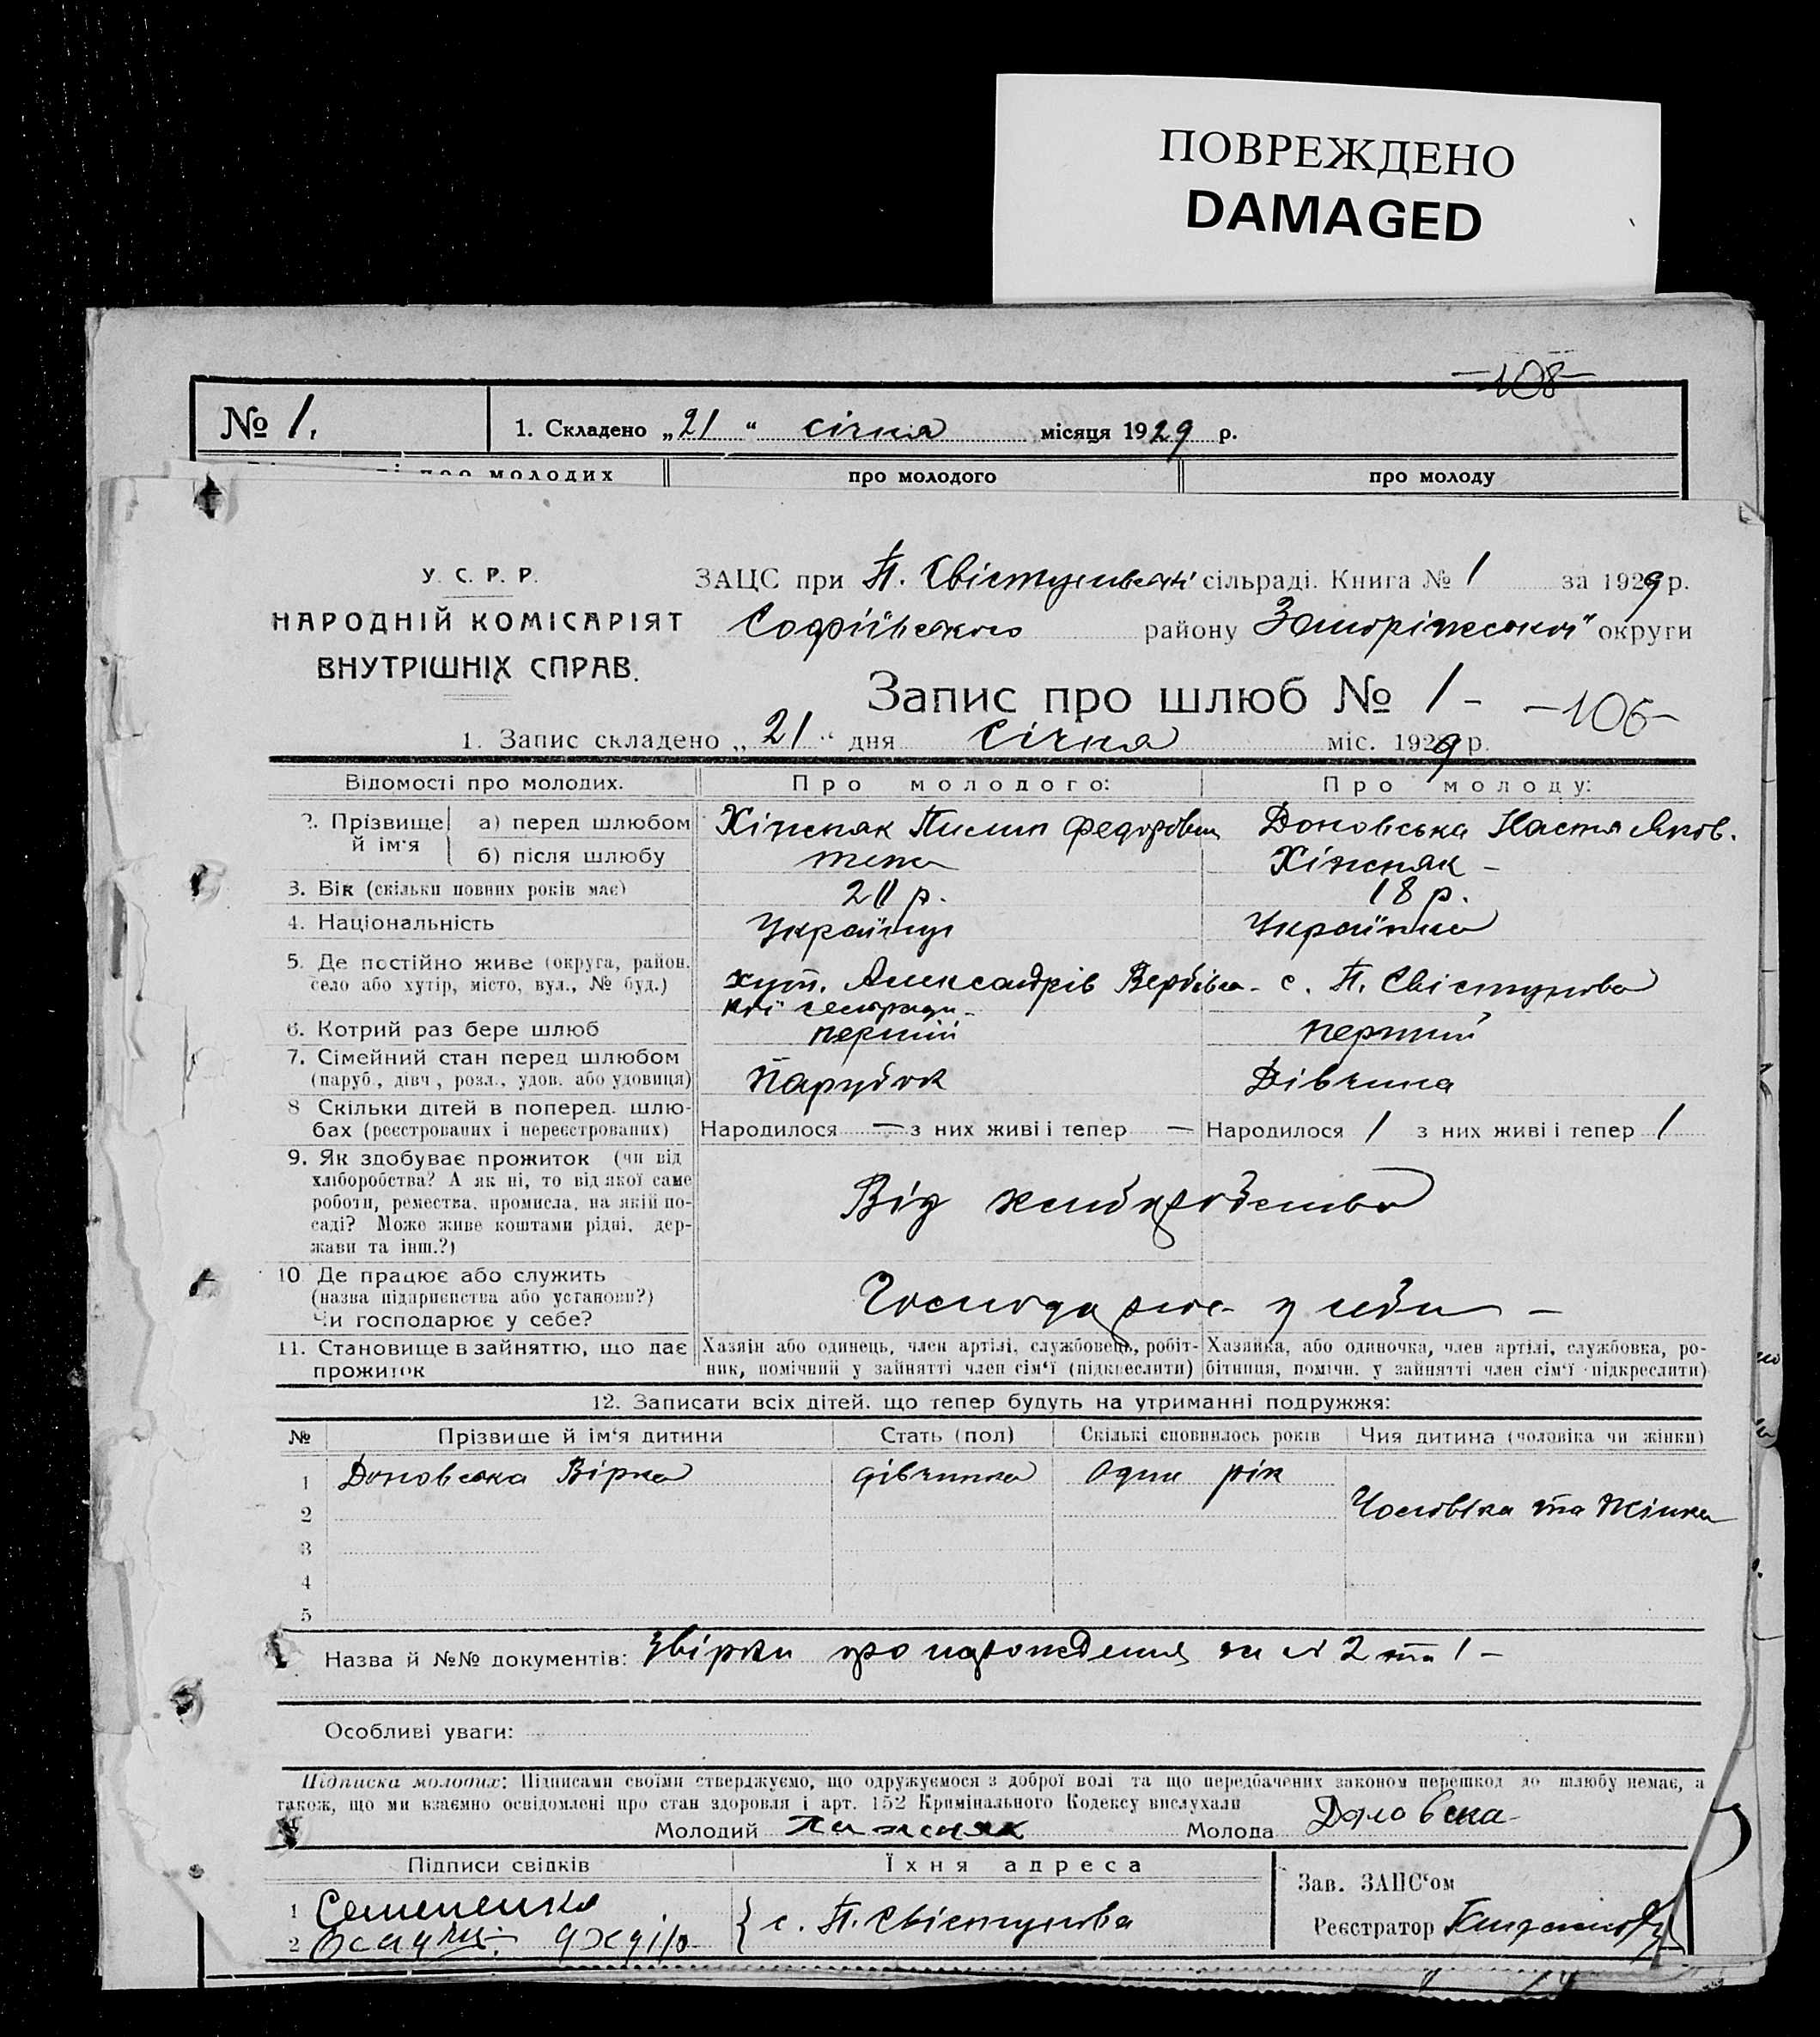 ПОВРЕЖДЕНО
DAMAGED
—108—
№ 1. 1. Складено „21“ січня місяця 1929 р.
про молодих про молодого про молоду
У. С. Р. Р.
НАРОДНІЙ КОМІСАРІЯТ
ВНУТРІШНІХ СПРАВ.
ЗАЦС при П. Свістунівській сільраді. Книга № 1 за 1929 р.
Софіївського району Запоріжської округи
Запис про шлюб № 1 - —106—
1. Запис складено „21“ дня Січня міс. 1929 р.
Відомості про молодих. Про молодого: Про молоду:
2. Прізвище й ім'я а) перед шлюбом Хіжняк Пилип Федорович Доновська Настя Яков.
б) після шлюбу теж Хіжняк -
3. Вік (скільки повних років має) 20 р. 18 р.
4. Національність Українця Українка
5. Де постійно живе (округа, район, село або хутір, місто, вул., № буд.) хут. Александрів Вербівської сельради - с. П. Свістунова
6. Котрий раз бере шлюб перший перший
7. Сімейний стан перед шлюбом (паруб., дівч., розл., удов. або удовиця) Парубок Дівчина
8 Скільки дітей в поперед. шлюбах (реєстрованих і нереєстрованих) Народилося — з них живі і тепер — Народилося 1 з них живі і тепер 1
9. Як здобуває прожиток (чи від хліборобства? А як ні, то від якої саме роботи, ремества, промисла, на якій посаді? Може живе коштами рідні, держави та інш.?) Від хліборобства
10 Де працює або служить (назва підприємства або установи?) Чи господарює у себе? Господарює у себе —
11. Становище в зайняттю, що дає прожиток Хазяїн або одинець, член артілі, службовець, робітник, помічний у зайнятті член сім'ї (підкреслити) Хазяйка, або одиночка, член артілі, службовка, робітниця, помічн. у зайнятті член сім'ї підкреслити)
12. Записати всіх дітей, що тепер будуть на утриманні подружжя:
№ Прізвище й ім'я дитини Стать (пол) Скількі сповнилось років Чия дитина (чоловіка чи жінки)
1 Доновська Вірка дівчинка Один рік
2 Чоловіка та Жінка
3
4
5
Назва й №№ документів: про народження за № 2 та 1 -
Особливі уваги:
Підписка молодих: Підписами своїми стверджуємо, що одружуємося з доброї волі та що передбачених законом перешкод до шлюбу немає, а
також, що ми взаємно освідомлені про стан здоровля і арт. 152 Кримінального Кодексу вислухали
Молодий Молода
Підписи свідків Їхня адреса Зав. ЗАПС'ом
1 Семененко
2 { с. П. Свістунова
Реєстратор